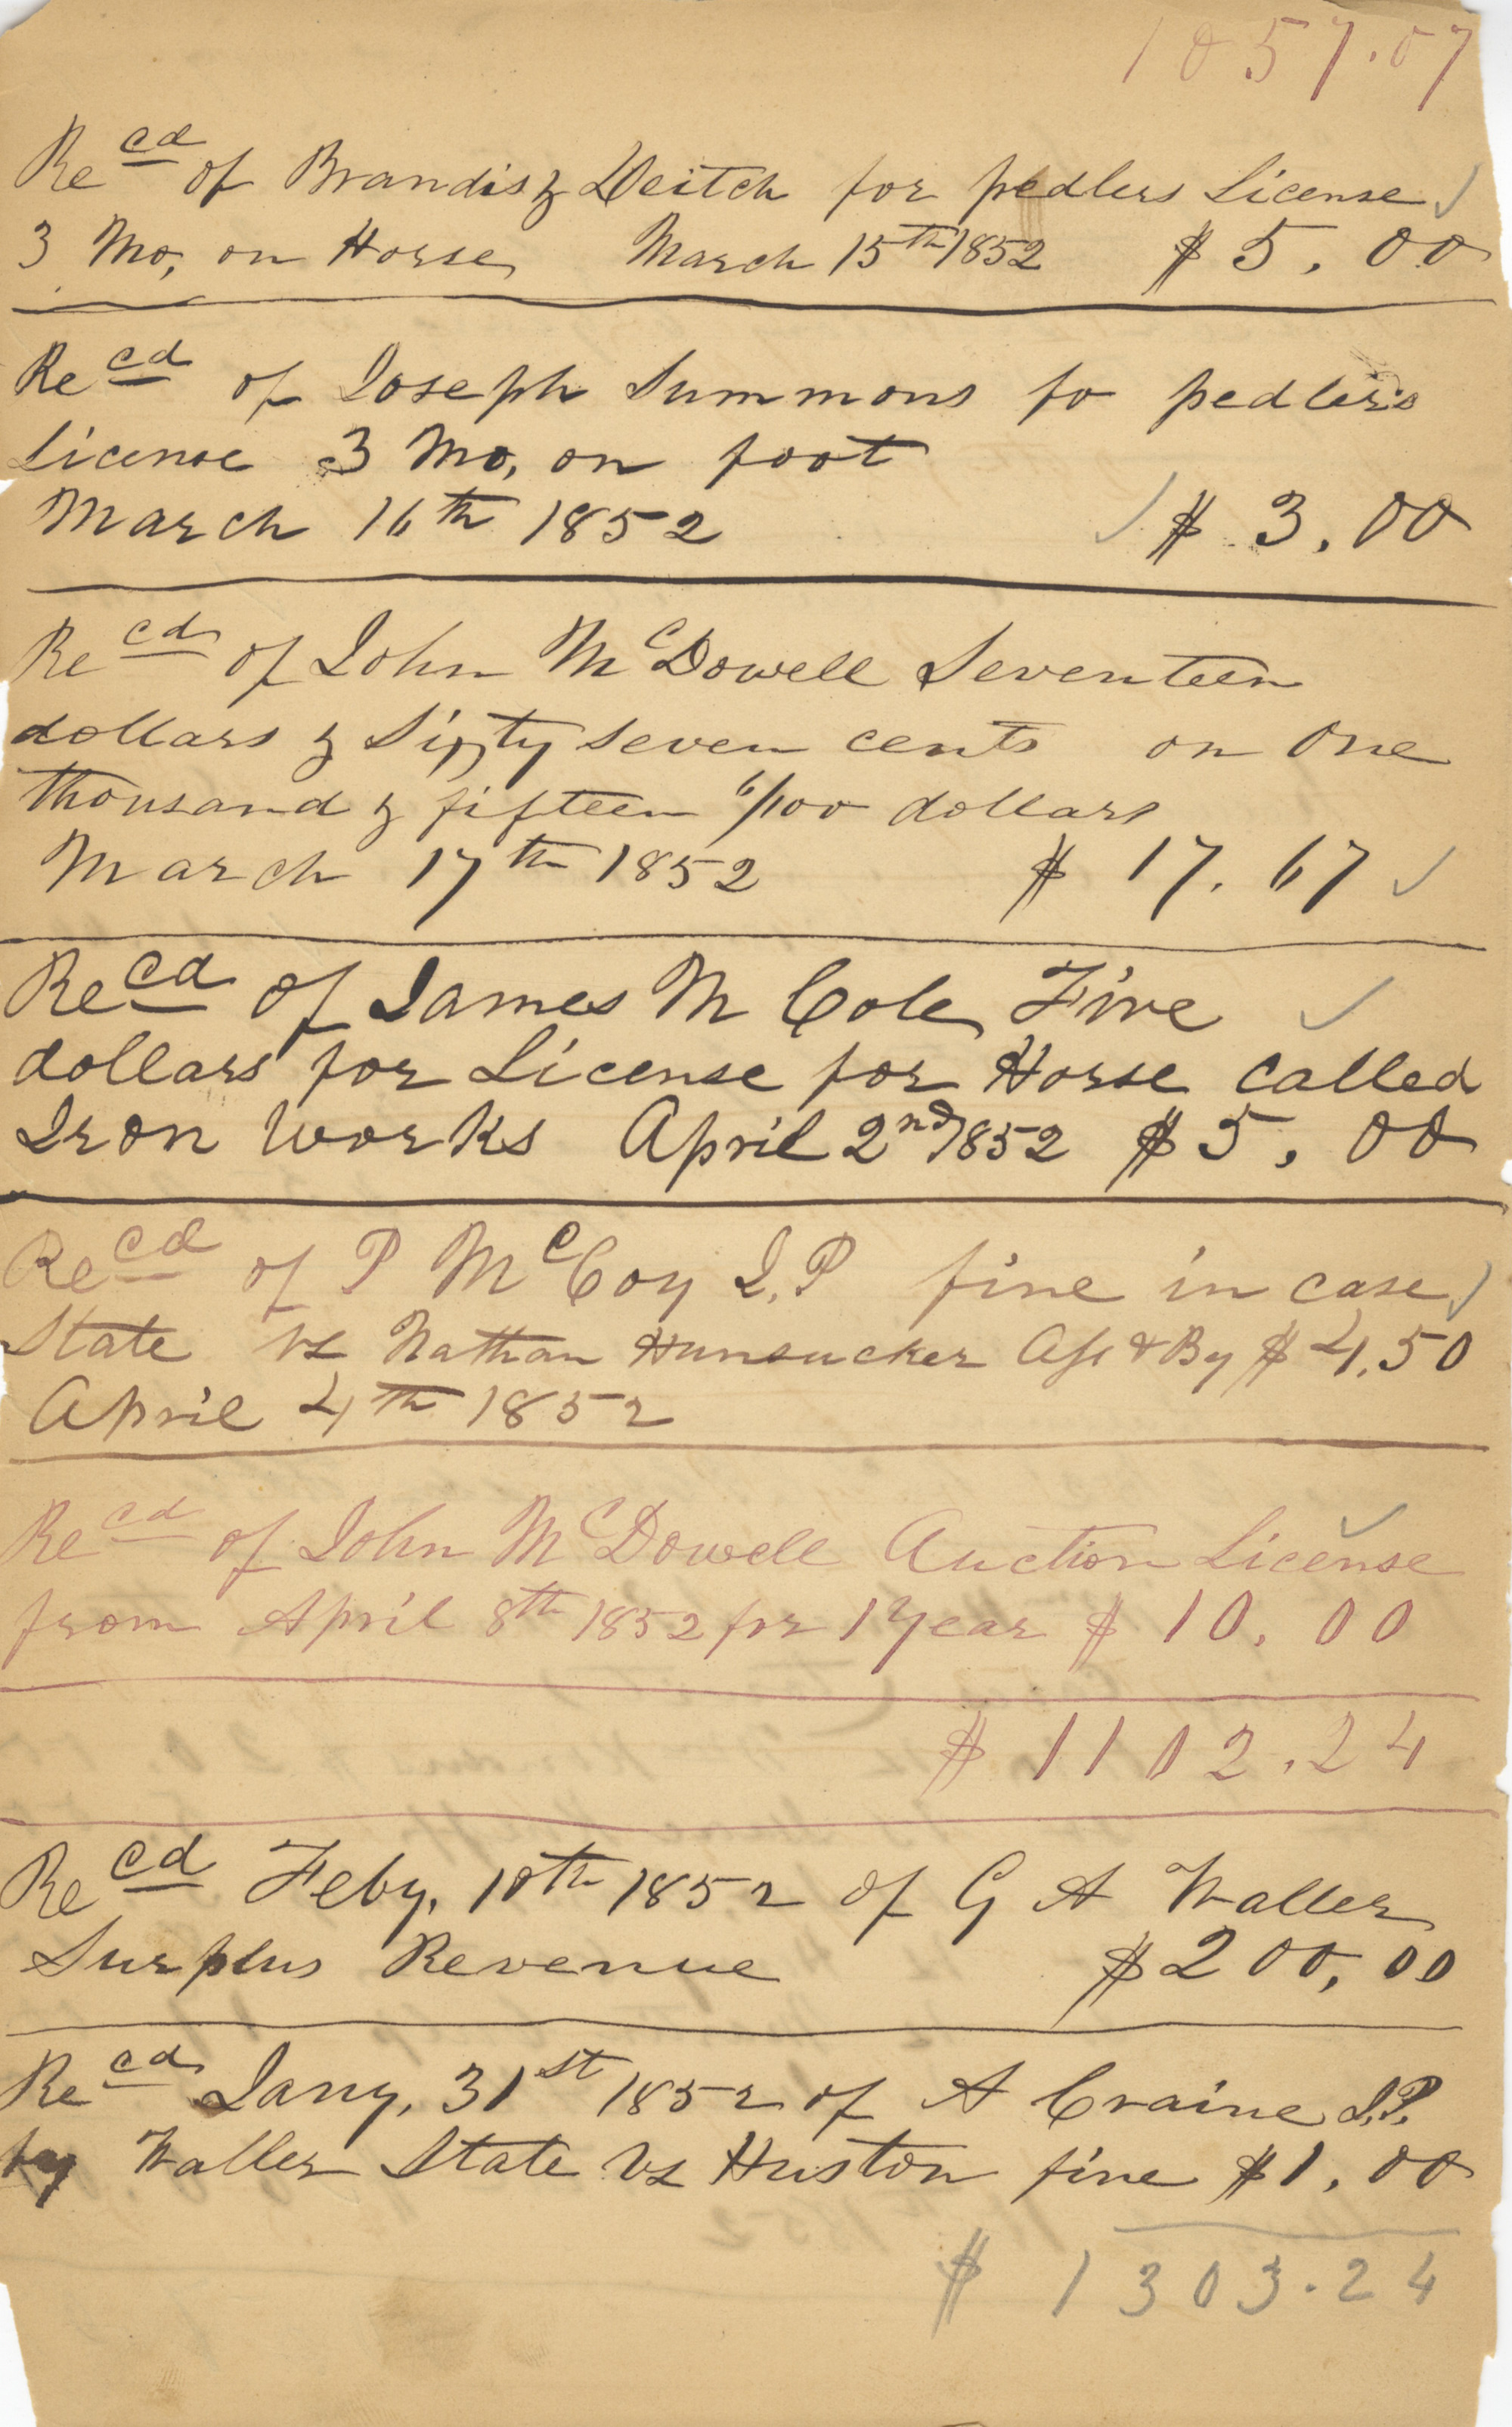 1057.07
Recd of Brandis & Deitch for pedlers License
3 Mo, on Horse, March 15th 1852 $5.00
Recd of Joseph Summons fo pedlers
License 3 Mo, on foot
March 16th 1852 $3.00
Recd of John McDowell Seventeen
dollars & Sixty Seven cents on One
thousand & fifteen 6/100 dollars
March 17th 1852 $17.67
Recd of James M Cole, Five
dollars for License for Horse called
Iron Works April 2nd 1852 $5.00
Recd of P McCoy J.P fine in case
State vs Nathan Hunsucker & By $4.50
April 4th 1852
Recd of John McDowell Auction License
from April 8th 1852 for 1 Year $10.00
$1102.24
Recd Feby, 10th 1852 of G A Waller
Surplus Revenue $200,00
Recd Jany, 31st 1852 of A Craine J.P.
by Waller State vs Huston fine $1,00
$1303.24